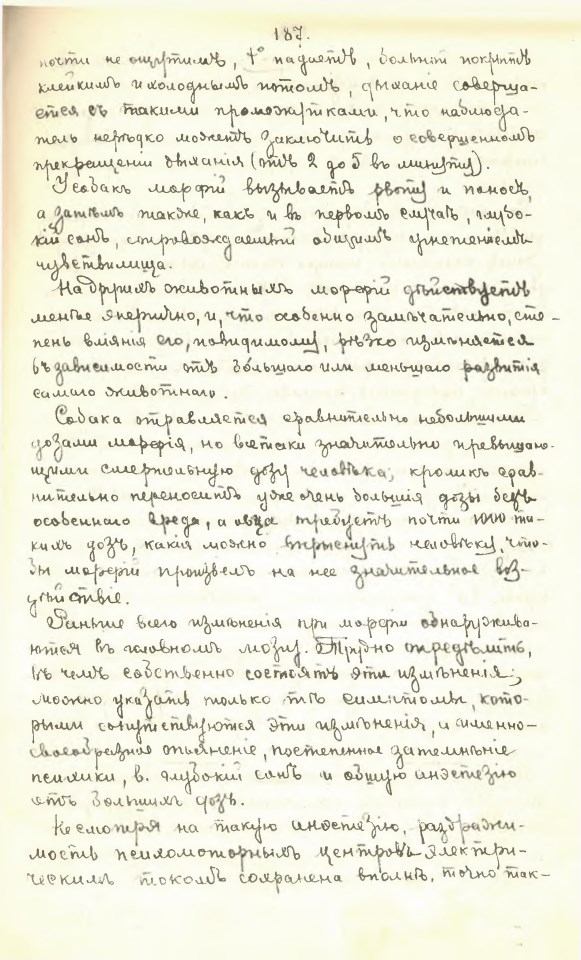 187.
почти не ощутимъ, t° падаетъ, больной покрытъ
клейкимъ и холоднымъ потомъ, дыханіе соверша-
ется съ такими промежутками, что наблюда-
тель нерѣдко можетъ заключить о совершенномъ
прекращеніи дыханія (отъ 2 до 5 въ минуту).
У собакъ морфій вызываетъ рвоту и поносъ,
а затѣмъ также, какъ и въ первомъ случаѣ, глубо-
кій сонъ, спровождаемый общимъ угнетеніемъ
чувствилища.
На другихъ животныхъ морфій дѣйствуетъ
менѣе энергично, и, что особенно замѣчательно, сте-
пень вліянія его, повидимому, рѣзко измѣняется
въ зависимости отъ бо́льшаго или меньшаго развитія
самаго животнаго.
Собака отравляется сравнительно небольшими
дозами морфія, но всетаки значительно превышаю-
щими смертельную дозу человѣка; кроликъ срав-
нительно переноситъ уже очень большія дозы безъ
особеннаго вреда, а овца требуетъ почти 1000 та-
кихъ дозъ, какія можно впрыснуть человѣку, что-
бы морфій произвелъ на нее значительное воз-
дѣйствіе.
Раньше всего измѣненія при морфіи обнаружива-
ются въ головномъ мозгу. Трудно опредѣлить,
въ чемъ собственно состоятъ эти измѣненія;
можно указать только тѣ симптомы, кото-
рыми сопутствуются эти измѣненія, и именно-
своеобразное опьяненіе, постепенное затемнѣніе
психики, в. глубокій сонъ и общую анэстезію
отъ большихъ дозъ.
Несмотря на такую анэстезію, раздражи-
мость психомоторныхъ центровъ электри-
ческимъ токомъ сохранена вполнѣ, точно так-